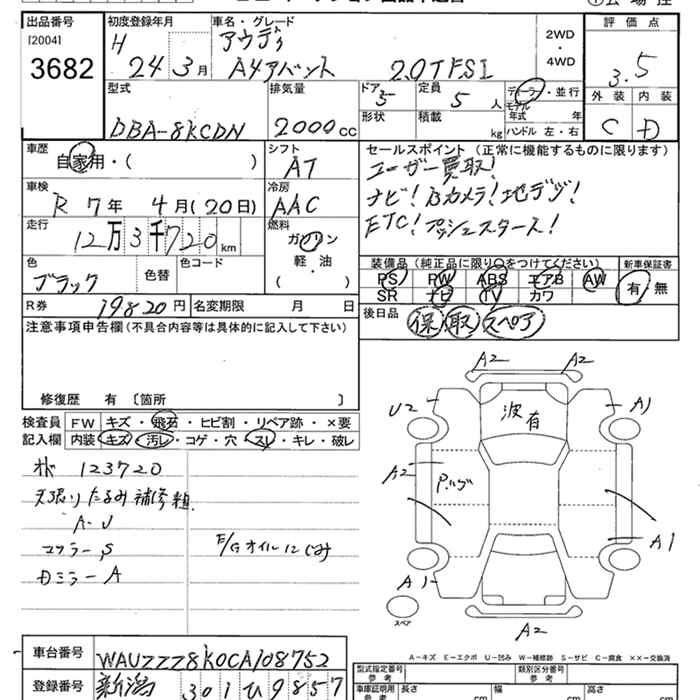 出品番号
[2004]
3682
初度登録年月
H 24年3月
車名・グレード
アウディ
A4アバント 2.0TFSI
2WD
・
4WD
評価点
3.5
外装 内装
C D
型式
DBA-8KCDN
排気量
2000cc
ドア
5
定員
5人
形状
積載
kg
ディーラー・並行
モデル
年式 年
ハンドル 左・右
車歴
自家用・( )
シフト
AT
車検
R 7年 4月(20日)
冷房
AAC
走行
12万3千720km
燃料
ガソリン
軽・油
( )
色
ブラック
色替
色コード
R券 19820円
名変期限 月 日
セールスポイント (正常に機能するものに限ります)
ユーザー買取!
ナビ!Bカメラ!地デジ!
ETC!プッシュスタート!
装備品(純正品に限り○をつけてください)
新車保証書
PS PW ABS エアB AW
SR ナビ TV カワ
有・無
後日品 保 取 スペア
注意事項申告欄(不具合内容等は具体的に記入して下さい)
修復歴 有 〔箇所 〕
検査員
記入欄
FW キズ・飛石・ヒビ割・リペア跡・×要
内装 キズ・汚レ・コゲ・穴・スレ・キレ・破レ
123720
天張りたるみ補修粗
A・U
マフラーS
Dミラー A
E/Gオイルにじみ
A2 A2
U2 A1
波有
A2
A1
A1
A2
スペア
A-キズ E-エクボ U-凹み W-補修跡 S-サビ C-腐食 ××-交換済
車台番号 WAUZZZ8K0CA108752
登録番号 新潟 301 ひ 9857
型式指定番号
参考
類別区分番号
参考
車庫証明用
参考
長さ cm
幅 cm
高さ cm